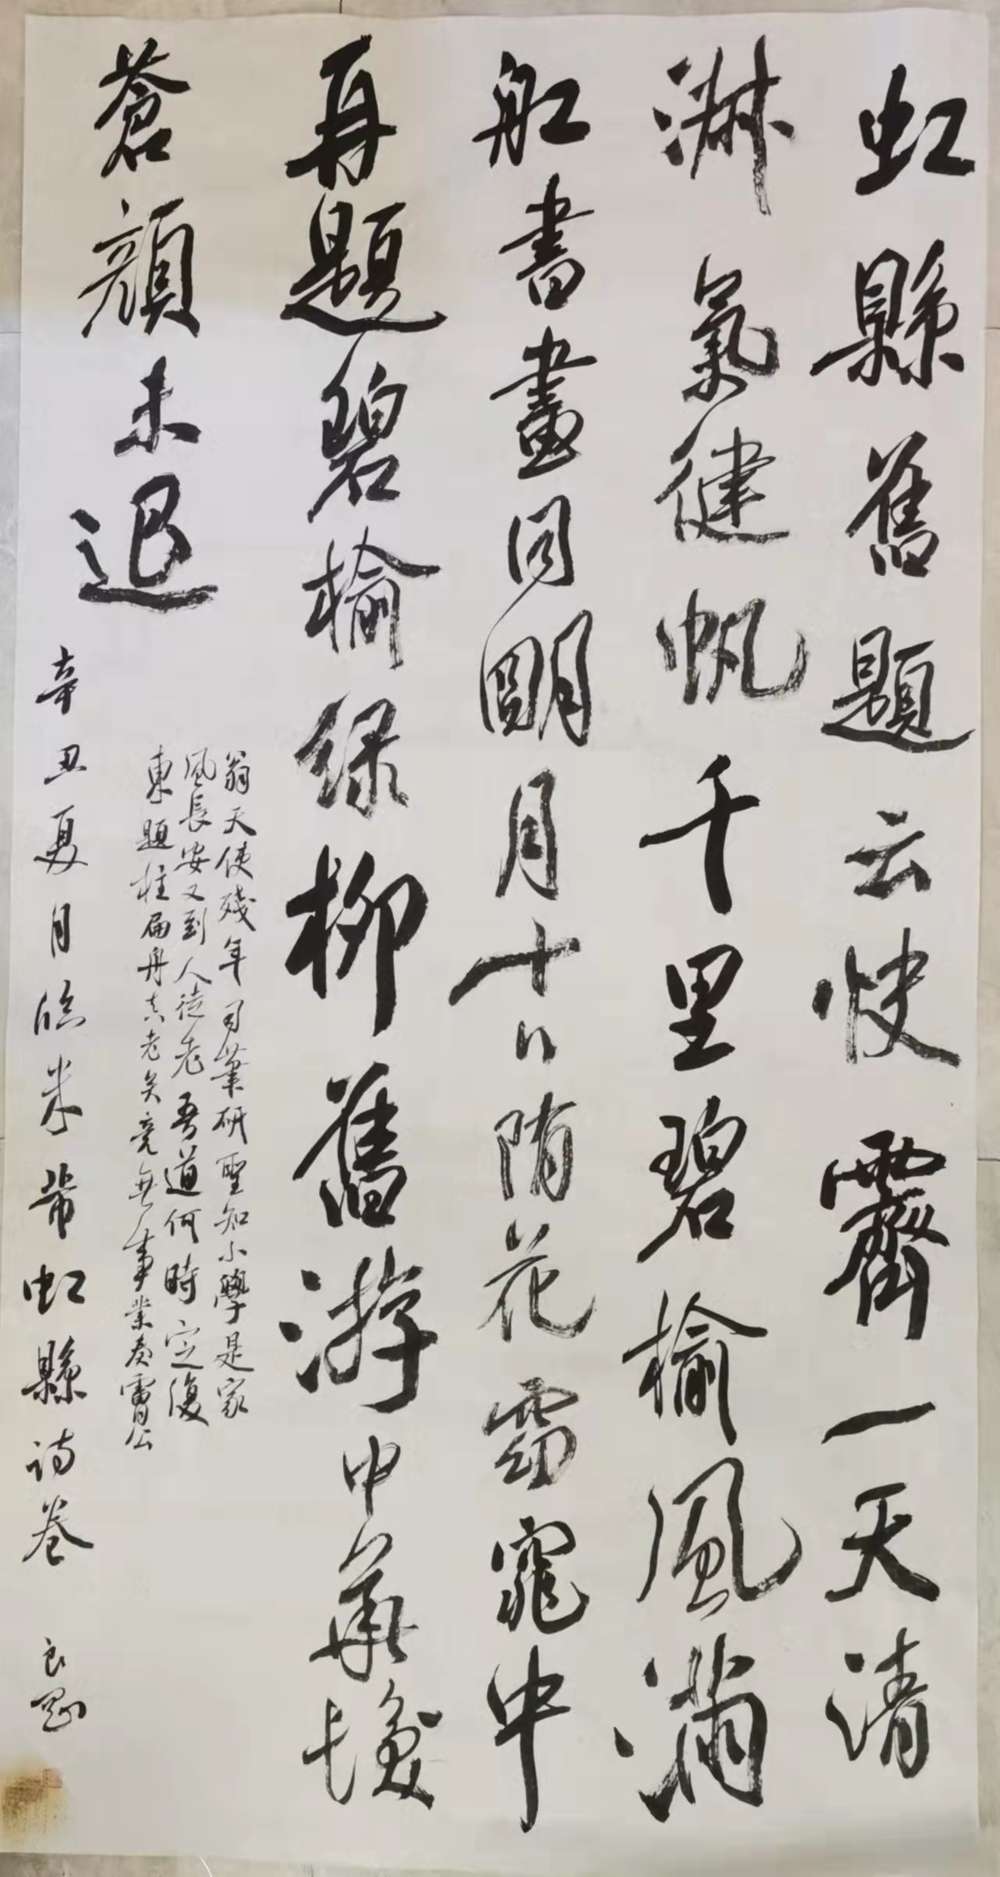 虹縣舊題云快霽一天清
淑氣健帆千里碧榆風滿
舡書畫同明月十日隨花窈窕中
再題碧榆绿柳舊游中華髮
蒼顏未退
翁天使殘年司筆研聖知小學是家
風長安又到人徒老吾道何時定復
東題柱扁舟真老矣竟無事業奏膚公
辛丑夏月臨米芾虹縣詩卷 良